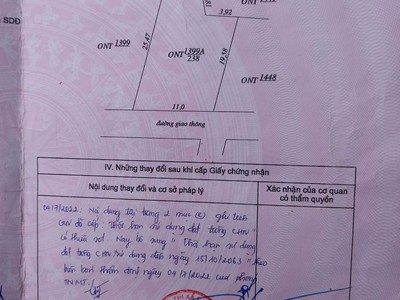 SDĐ
3,92
ONT 1399
25,47
ONT 1399A
238
19,58
ONT 1448
11.0
đường giao thông
IV. Những thay đổi sau khi cấp Giấy chứng nhận
Nội dung thay đổi và cơ sở pháp lý
Xác nhận của cơ quan
có thẩm quyền
04/7/2022. Nội dung tại trang 2 mục
đã cấp: "Thời hạn sử dụng đất trồng CHN
có thiếu sót. Nay bổ sung "Thời hạn sử dụng
đất trồng CHN sử dụng đến ngày 15/10/2063"
ngày 04/7/2022 của phòng
TNMT.